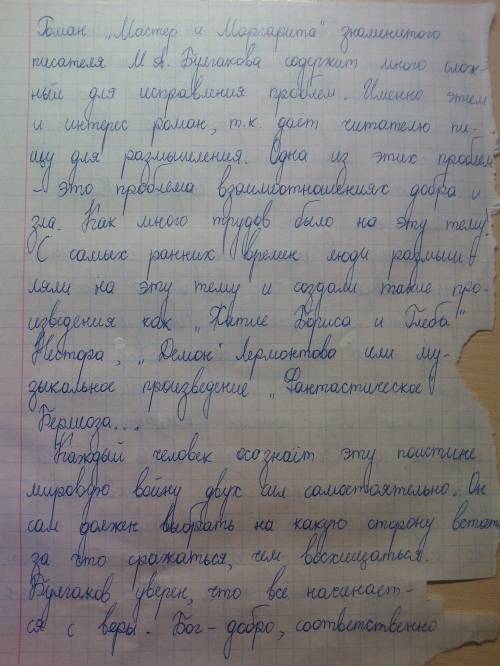 Роман „Мастер и Маргарита" знаменитого
писателя М.А. Булгакова содержит много слож-
ный для исправления проблем. Именно этим
и интерес роман, т.к. даёт читателю пи-
щу для размышления. Одна из этих проблем
– это проблема взаимоотношениях добра и
зла. Как много трудов было на эту тему!
С самых ранних времен люди размыш-
ляли на эту тему и создали такие про-
изведения как „Житие Бориса и Глеба"
Нестора, „Демон" Лермонтова или му-
зыкальное произведение „Фантастическое"
Берлиоза...
Каждый человек осознаёт эту поистине
мировую войну двух сил самостоятельно. Он
сам должен выбрать на какую сторону встать,
за что сражаться, чем восхищаться.
Булгаков уверен, что все начинает-
ся с веры. Бог – добро, соответственно